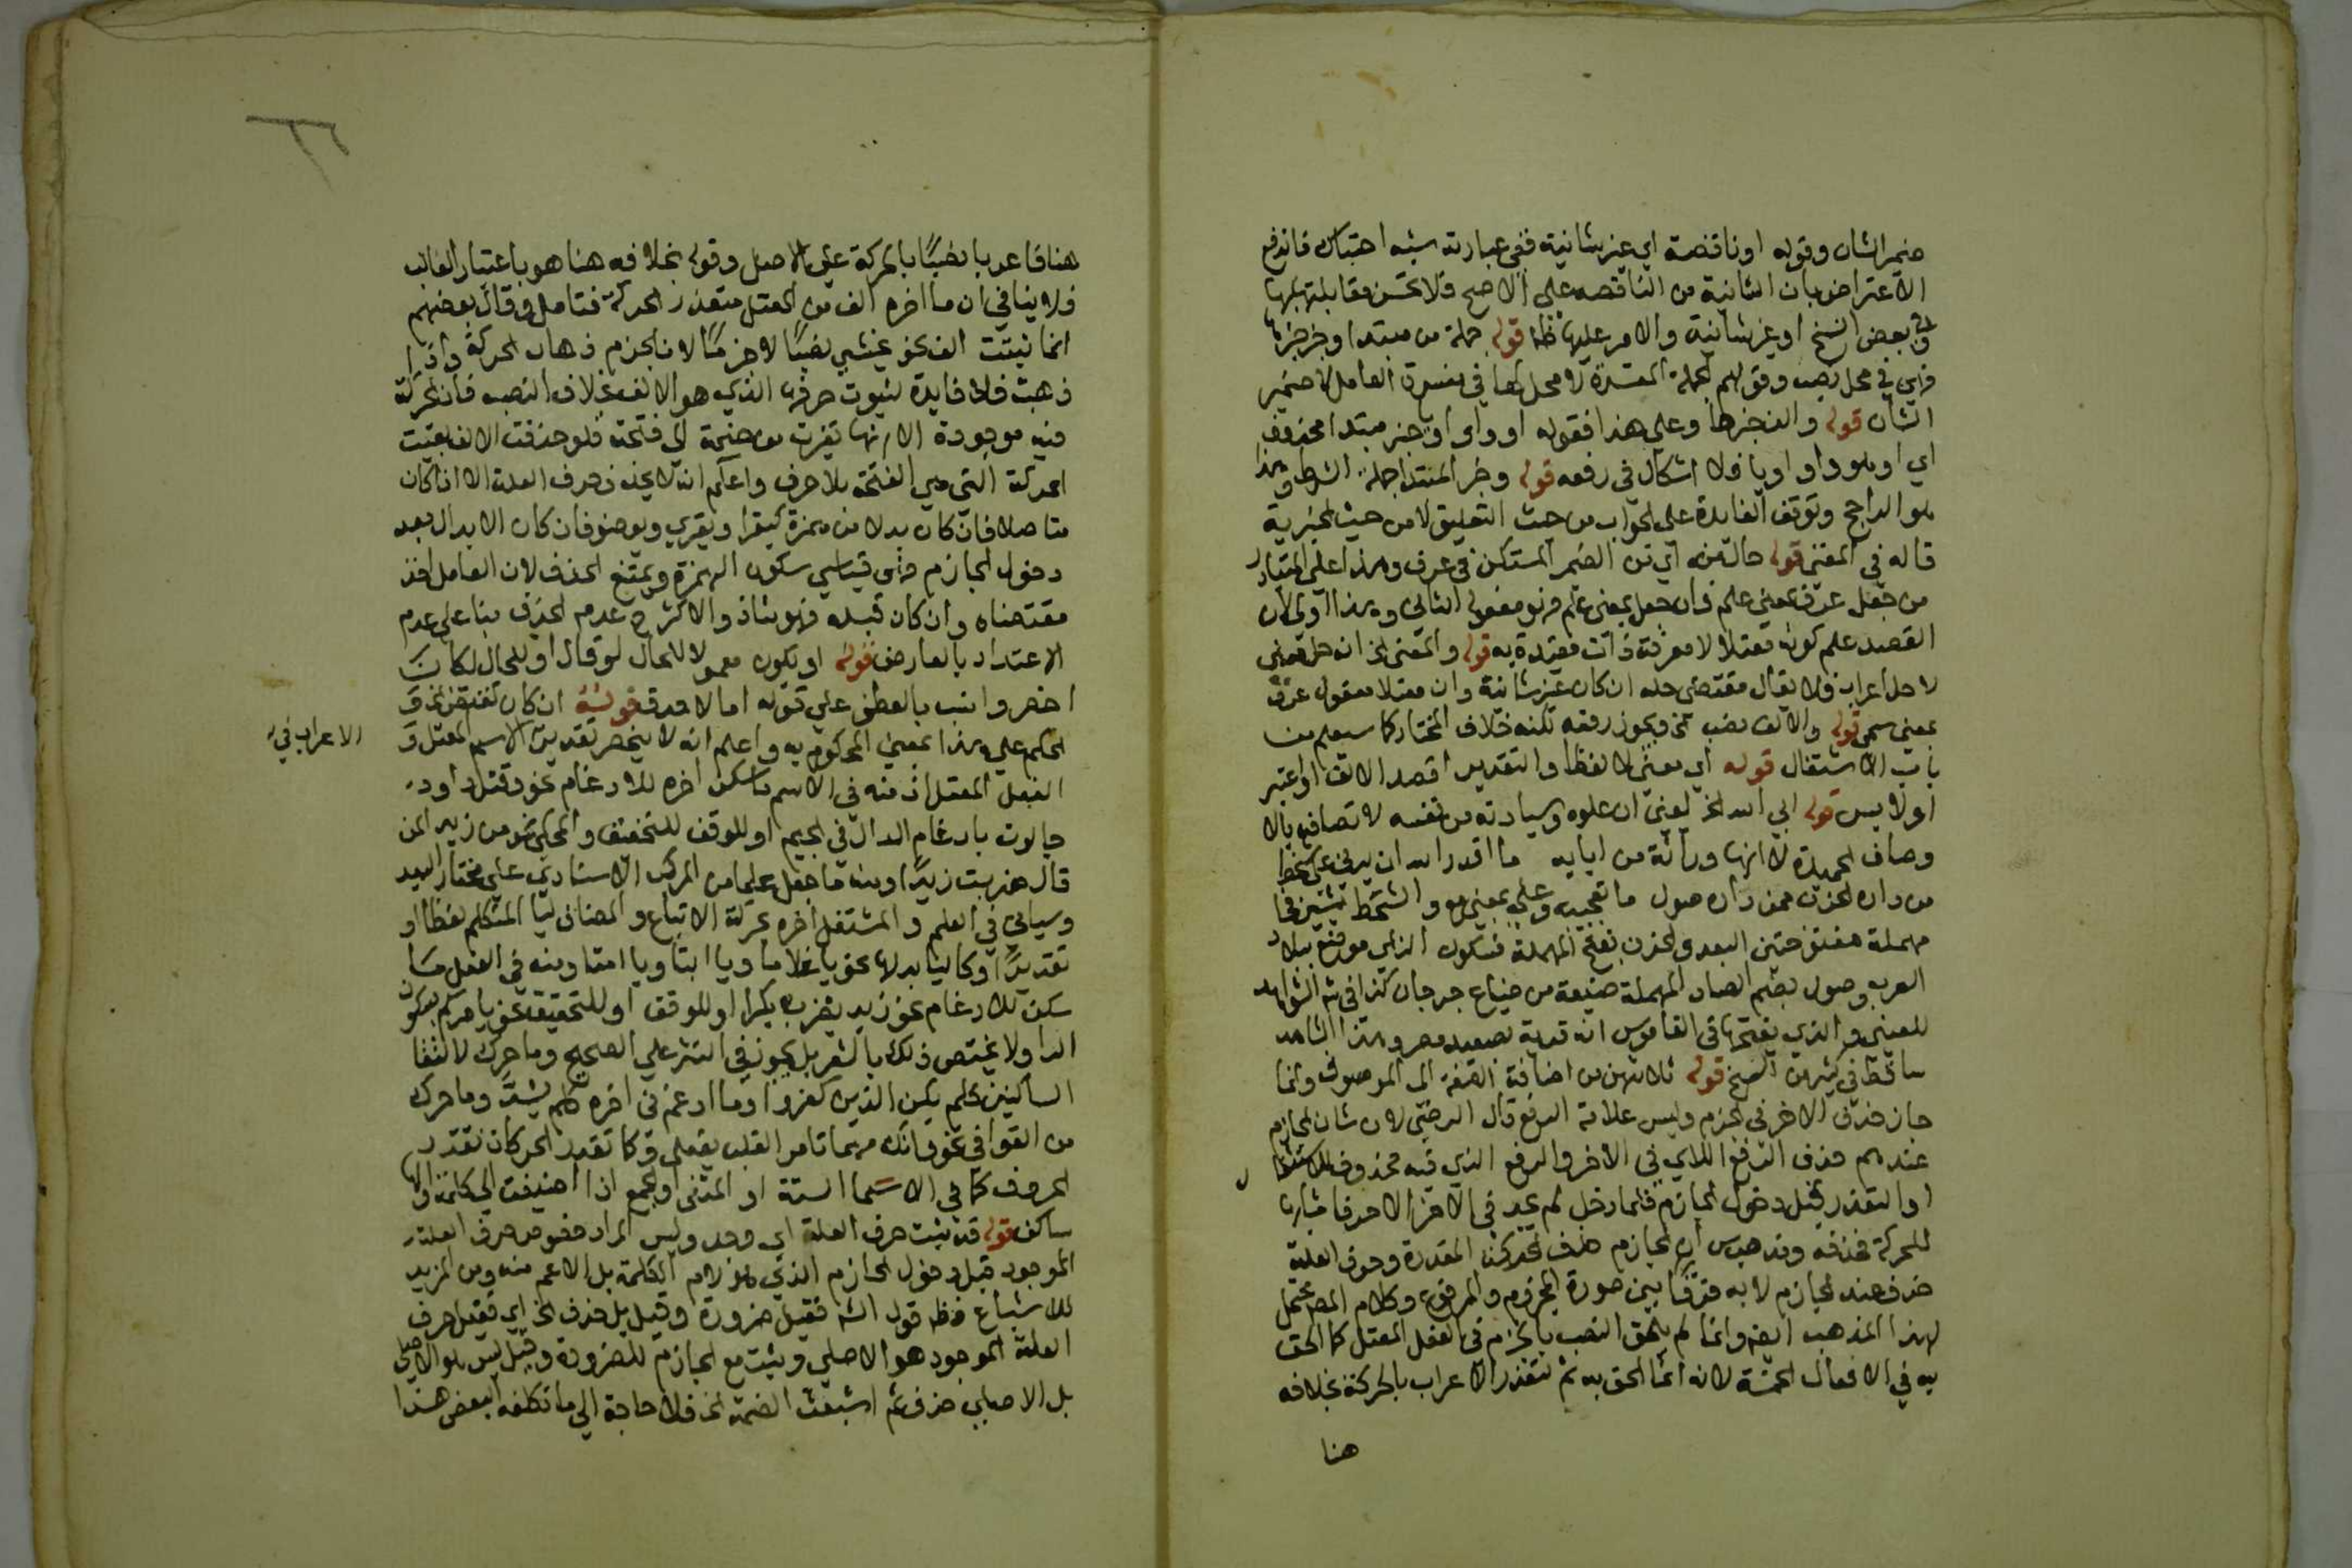 ضمير الشان وقوله او ناقصة اي غير شانية ففي عبارته شبه احتباك فاندفع
الاعتراض بان الشانية من الناقصة على الاصح فلا تحسن مقابلتها بها
وفي بعض النسخ او غير شانية والامر عليها ظ قوله جملة من مبتدا وخبر خبرها
فهي في محل نصب وقولهم الجملة المفسرة لا محل لها في مفسرة العامل لا ضمير
الشان قوله والف خبرها وعلى هذا فقوله او واو او خبر مبتدا محذوف
اي او هو واو او يا فلا اشكال في رفعه قوله وخبر المبتدا جملة الشرط وهذا
هو الراجح وتوقف الفايدة على الجواب من حيث التعليق لا من حيث الخبرية
قاله في المغني قوله حال منه اي من الضمير المستكن في عرف وهذا على المتبادر
من جعل عرف بمعنى علم فان جعل بمعنى علم فهو مفعوله الثاني وهذا اولى لان
القصد علم كونه معتلا لا معرفة ذات مقيدة به قوله والمعنى الخ انه حل معنى
لا حل اعراب فلا يقال مقتضى حله ان كان غير شانية وان معتلا مفعول عرف
بمعنى سمي قوله والالف نصب الخ ويجوز رفعه لكنه خلاف المختار كما سيعلم من
باب الاشتغال قوله اي معنى لا لفظا والتقدير اقصد الالف او اعتبر
او لابس قوله ابى الله الخ يعني ان علوه وسيادته من نفسه لاتصافه بالا
وصاف الحميدة لا انها وراثة من ابايه ما اقدر الله ان يدني على شحط
من داره الحزن ممن داره صول ما تعجبيه وعلى بمعنى مع والشحط بشين فحا
مهملة مفتوحتين البعد والحزن بفتح المهملة فسكون الزاي موضع ببلاد
العرب وصول بضم الصاد المهملة ضيعة من ضياع جرجان كذا في شرح الشواهد
للعيني والذي بفتحها في القاموس انه قرية بصعيد مصر وهذا الشاهد
ساقط في كثير من النسخ قوله ثلاثهن من اضافة الصفة الى الموصوف وانما
جاز حذف الاخر في الجزم وليس علامة الرفع قال الرضي لان شان الجازم
عندهم حذف الرفع الذي في الاخر والرفع الذي فيه محذوف للاستثقال
او التعذر قبل دخول الجازم فلما دخل لم يجد في الاخر الا حرفا مشابها
للحركة فحذفه ومذهب س ان الجازم حذف الحركة المقدرة وحرف العلة
حذف عند الجازم لا به فرقا بين صورة المجزوم والمرفوع وكلام المص يحتمل
لهذا المذهب ايضا وانما لم يلحق النصب بالجزم في الفعل المعتل كما الحق
به في الافعال الخمسة لانه انما الحق به ثم لتعذر الاعراب بالحركة بخلافه
هنا
٣٦
هنا فاعرب نصبا بالحركة على الاصل وقوله بخلافه هنا هو باعتبار الغالب
فلا ينافي ان ما اخره الف من المعتل متعذر الحركة فتامل وقال بعضهم
انما ثبتت الف نحو يخشى نصبا لا جزما لان الجزم ذهاب الحركة واذا
ذهبت فلا فايدة لثبوت حرفها الذي هو الالف بخلاف النصب فان الحركة
فيه موجودة الا انها تغيرت من ضمة الى فتحة فلو حذفت الالف بقيت
الحركة التي هي الفتحة بلا حرف واعلم انه لا يحذف حرف العلة الا اذا كان
متاصلا فان كان بدلا من همزة كيقرا ويقري ويوضو فان كان الابدال بعد
دخول الجازم فهو قياسي سكون الهمزة ويمتنع الحذف لان العامل اخذ
مقتضاه وان كان قبله فهو شاذ والاكثر ح عدم الحذف بنا على عدم
الاعتداد بالعارض قوله او يكون معمولا للحال لو قال او للحال لكان
اخصر وانسب بالعطف على قوله اما لاحرف قوله ان كان
الحكم على هذا بمعنى المحكوم به واعلم انه لا ينحصر تقدير الاسم المعتل و
الاعراب في
الفعل المعتل اذ منه في الاسم ما سكن اخره للادغام نحو وقتل داود
جالوت بادغام الدال في الجيم او للوقف للتخفيف والمحكي نحو من زيدا لمن
قال ضربت زيدا ومنه ما جعل علما من المركب الاسنادي على مختار السيد
وسياتي في العلم والمشتغل اخره بحركة الاتباع والمضاف ليا المتكلم لفظا او
تقديرا او كاليا بدلا نحو يا غلاما ويا ابتا ويا امتا ومنه في الفعل ما
سكن للادغام نحو زيد يضرب بكرا او للوقف او للتخفيف نحو يامركم بسكون
الرا ولا يختص ذلك بالشعر بل يجوز في النثر على الصحيح وما حرك لالتقا
الساكنين كلم يكن الذين كفروا وما ادغم في اخره كلم يشد وما حرك
من القوافي نحو وانك مهما تامري القلب يفعل وكما تقدر الحركات تقدر
الحروف كما في الاسما الستة او المثنى او الجمع اذا اضيفت الى كلمة اولها
ساكن قوله قد يثبت حرف العلة اي وحد وليس المراد خصوص حرف العلة
الموجود قبل دخول الجازم الذي هو لام الكلمة بل الاعم منه ومن المزيد
للاشباع فظ قول الش فقيل ضرورة وقيل بل حذف الخ اي فقيل حرف
العلة الموجود هو الاصلي ويثبت مع الجازم للضرورة وقيل ليس هو الاصلي
بل الاصلي حذف ثم اشبعت الضمة الخ فلا حاجة الى ما تكلفه البعض هنا